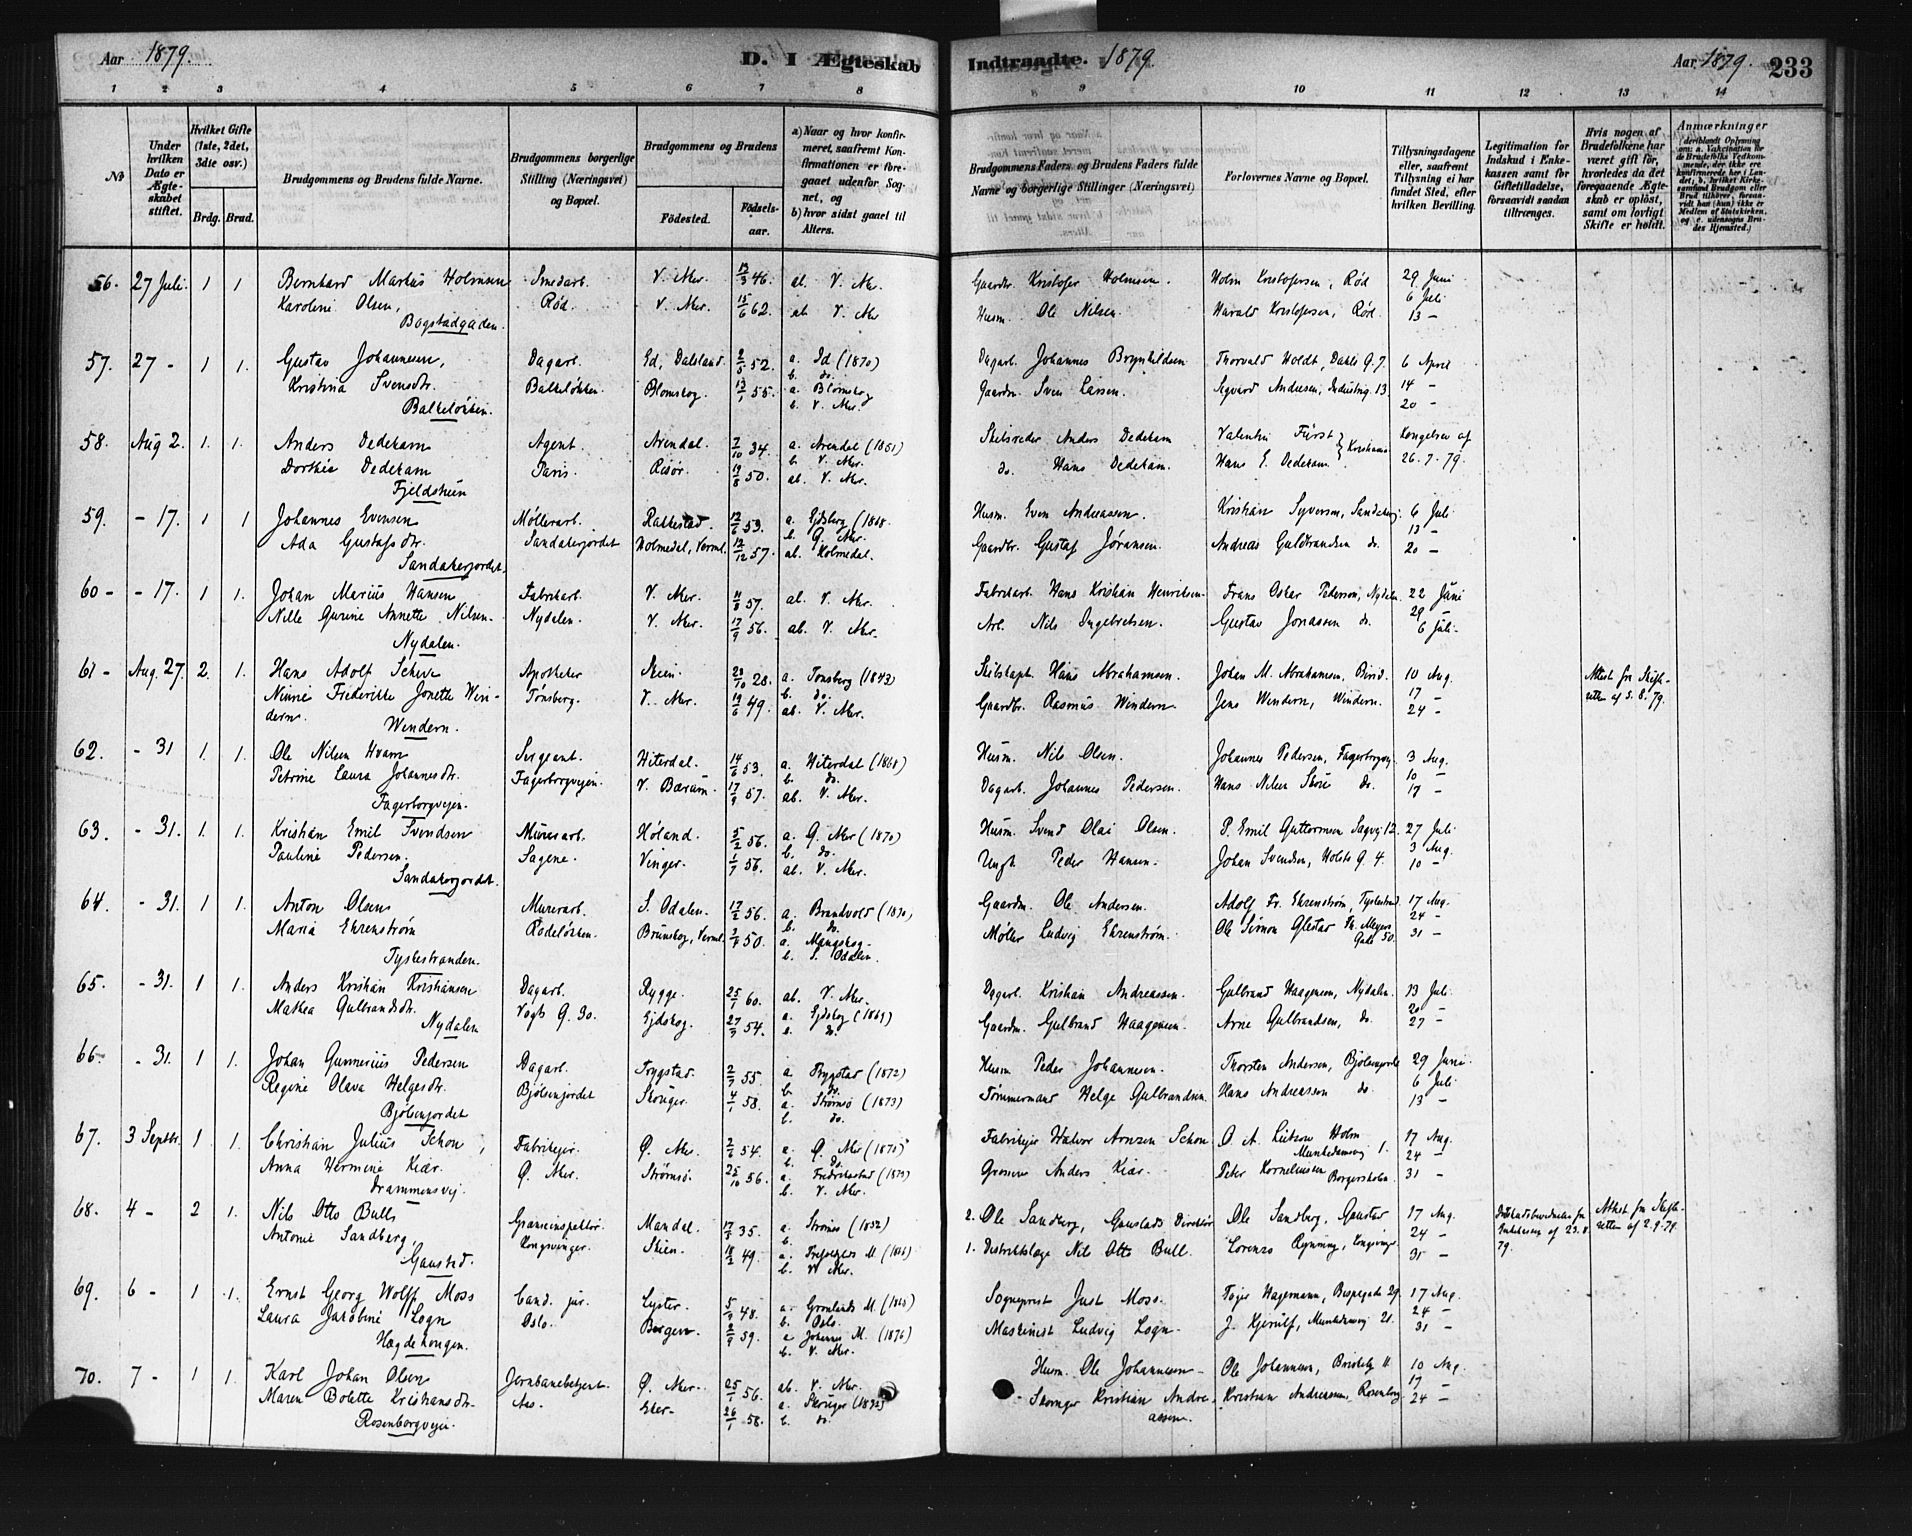 Aar 1879.
D. I Ægteskab
Indtraadte. 1879.
Aar 1879. 233
1 2 3 4 5 6 7 8
9 10 11 12 13 14
No
Under hvilken Dato er Ægteskabet stiftet.
Hvilket Gifte (1ste, 2det, 3die osv.)
Brdg. Brud.
Brudgommens og Brudens fulde Navne.
Brudgommens borgerlige Stilling (Næringsvei) og Bopæl.
Brudgommens og Brudens
Födested. Födselsaar.
a) Naar og hvor konfirmeret, saafremt Konfirmationen er foregaaet udenfor Sognet, og
b) hvor sidst gaaet til Alters.
Brudgommens Faders og Brudens Faders fulde Navne og borgerlige Stillinger (Næringsvei)
Forlovernes Navne og Bopæl.
Tillysningsdagene eller, saafremt Tillysning ei har fundet Sted, efter hvilken Bevilling.
Legitimation for Indskud i Enkekassen samt for Giftetilladelse, forsaavidt saadan tiltrænges.
Hvis nogen af Brudefolkene har været gift för, hvorledes da det foregaaende Ægteskab er oplöst, samt om lovligt Skifte er holdt.
Anmærkninger
56. 27 Juli 1 1 Bernhard Markus Holmsen Smedarb. V. Aker 46. ab. V. Aker. Gaardbr. Kristofer Holmsen. Holm Kristofersen, Röd 29 Juni
Karoline Olsen, Röd. V. Aker. 15/6 62. ab V. Aker Husm. Ole Nilsen. Harald Kristofersen, Röd. 6 Juli
Bogstadgaden. 13 -
57. 27 - 1 1. Gustav Johannesen, Dagarb. Ed, Dalsland. 52. a. Id (1870) b. do. Dagarb. Johannes Brynhildsen Thorvald Holdt, Dahls G. 7. 6 April
Kristina Svensdtr. Balkeløkken. Blomskog. 13/1 55. a. Blomskog b. V. Aker. Gaardm. Sven Larsen. Sigvard Andresen, Industrig. 13. 14 -
Balkeløkken. 20 -
58. Aug 2. 1. 1. Anders Dedekam Agent. Arendal. 7/10 34. a. Arendal (1851) b. V. Aker. Skibsreder Anders Dedekam Valentin Fürst Kristiania Kongebrev af
Dorthea Dedekam Paris. Risör. 19/8 50. ab. V. Aker. do. Hans Dedekam. Hans E. Dedekam 26.7.79.
Fjeldheim
59. - 17. 1 1 Johannes Evensen Møllerarb. Rakkestad. 12/6 53. a. Ejdsberg (1868. b. G. Aker. Husm. Even Andreassen. Kristian Syversen, 6 Juli
Ada Gustafsdtr. Sandakerjordet Holmedal, Verml. 12/12 57. ab. Holmedal. Gaardbr. Gustaf Jöransen. Andreas Guldbrandsen do. 13 -
Sandakerjordet. 20 -
60 - - 17. 1 1. Johan Marius Hansen Fabrikarb. V. Aker. 11/8 57. ab. V. Aker. Fabrikarb. Hans Kristian Henriksen. Frans Oskar Pederson, Nydalen 22 Juni
Nille Gurine Annette Nilsen. Nydalen. V. Aker. 17/9 56. ab. V. Aker. Arb. Nils Ingebretsen. Gustav Jonassen do. 29 -
Nydalen. 6 Juli.
61 - Aug. 27. 2. 1. Hans Adolf Apotheker Skien. 20/10 28. a. Tønsberg (1843) b. do. Skibskapt. Hans Abrahamsen. Johan M. Abrahamsen, 10 Aug. Attest fr. Skifteretten af 5.8.79.
Ninni Frederikke Jonette Windern. Tønsberg. V. Aker. 19/6 49. ab. V. Aker. Gaardbr. Rasmus Windern. Jens Windern, Windern. 17 -
Windern. 24 -
62. - 31 1. 1. Ole Nilsen Hvam Sergeant. Hiterdal. 14/6 53. a. Hiterdal (1868) b. do. Husm. Nils Olsen. Johannes Pedersen, Fagerborgvej 3 Aug.
Petrine Laura Johannesdtr. Fagerborgvejen. V. Bærum. 17/9 57. ab. V. Aker. Dagarb. Johannes Pedersen. Hans Nilsen do. 10 -
Fagerborgvejen. 17 -
63. - 31. 1. 1. Kristian Emil Svendsen Murerarb. Høland. 5/2 56. a. G. Aker (1870) b. do. Husm. Svend Olai Olsen. P. Emil Guttormsen Sagvej 12. 27 Juli
Pauline Pedersen. Sagene. Vinger. 1/7 56. ab. V. Aker. Ungk. Peder Hansen. Johan Svendsen, Holsts G. 4. 3 Aug.
Sandakerjordet. 10 -
64. - 31. 1 1. Anton Olsen Murerarb. S. Odalen. 17/2 56. a. Brandvold (1870) b. do. Gaardm. Ole Andersen. Adolf Fr. Ehrenstrøm, 17 Aug.
Maria Ehrenstrøm Rodeløkken. Brunskog, Verml. 50. a. Mangskog. b. S. Odalen. Møller Ludvig Ehrenstrøm. Ole Simon Th. Meyers Gade 50. 24 -
31 -
65. - 31. 1 1. Anders Kristian Kristiansen Dagarb. Rygge. 25/1 60. ab. V. Aker. Dagarb. Kristian Andreassen. Gulbrand Haagensen, Nydalen. 13 Juli
Mathea Gulbrandsdtr. Vogts G. 30. Ejdskog. 54. a. Ejdskog (1869) b. do. Gaardm. Gulbrand Haagensen. Arne Gulbrandsen, do. 20 -
Nydalen 27 -
66. - 31. 1 1. Johan Gunnerius Pedersen Dagarb. Trygstad. 55. a Trygstad (1872) b. do. Husm Peder Johannesen. Thorsten Andersen, Bjölsenjordet 29 Juni
Regine Olava Helgesdtr. Bjölsenjordet Skouger. 4/1 58. a. Strømsø (1873) b. do. Tömmermand Helge Gulbrandsen. Hans Andreassen do 6 Juli
Bjölsenjordet 13 -
67. 3 Septbr. 1. 1. Christian Julius Schou, Fabrikejer. Ø. Aker. 54. a. Ø. Aker (1870) b. do. Fabrikejer Halvor Arnzen Schou O. A. Lützow Holm Munkedamsvej 1. 17 Aug.
Anna Hermine Kiær. Ø. Aker. Strømsö. 25/10 56. a. Fredrikstad (1873) b. V. Aker. Grosserer Anders Kiær. Peter Kornelinsen Borgersholm. 24 -
Drammensvej. 31 -
68. 4 - 2 1. Nils Otto Bull Grænseinspektör. Mandal. 35. a. Strømsö (1852) b. 2. Ole Sandberg, Gaustads Direktör Ole Sandberg, Gaustad 17 Aug. Attest fra Skifteretten af 2.9.79.
Antonie Sandberg, Kongsvinger. Skien. 18/2 49. a. Trefoldigheds M. (1866) b. V. Aker. 1. Distriktslæge Nils Otto Bull. Lorenzo Kongsvinger 24 -
Gaustad. 31 -
69. 6 - 1 1. Ernst Georg Wolff Moss Cand. jur. Lyster. 48. a. Grønlands M. b. Oslo. Sogneprest Just Moss. Hagemann, Bispegade 29. 17 Aug.
Laura Jakobine Sogn Oslo. Bergen. 59. a Johannes M. (1876) b. V. Aker. Maskinist Ludvig Sogn. J. Kjerulf, Munkedamsvej 21. 24 -
Hægdehougen. 31 -
70. 7 - 1 1. Karl Johan Olsen Jernbanebetjent. Ø. Aker. 25/1 56. ab. V. Aker. Husm. Ole Johannesen Ole Johannesen, 10 Aug.
Maren Bolette Kristiansdtr. Aas. Eker. 26/1 58. a. Skouger (1872) b. do. Skomager Kristian Andreassen. Kristian Andreassen, Rosenborg 17 -
Rosenborgvejen 24 -